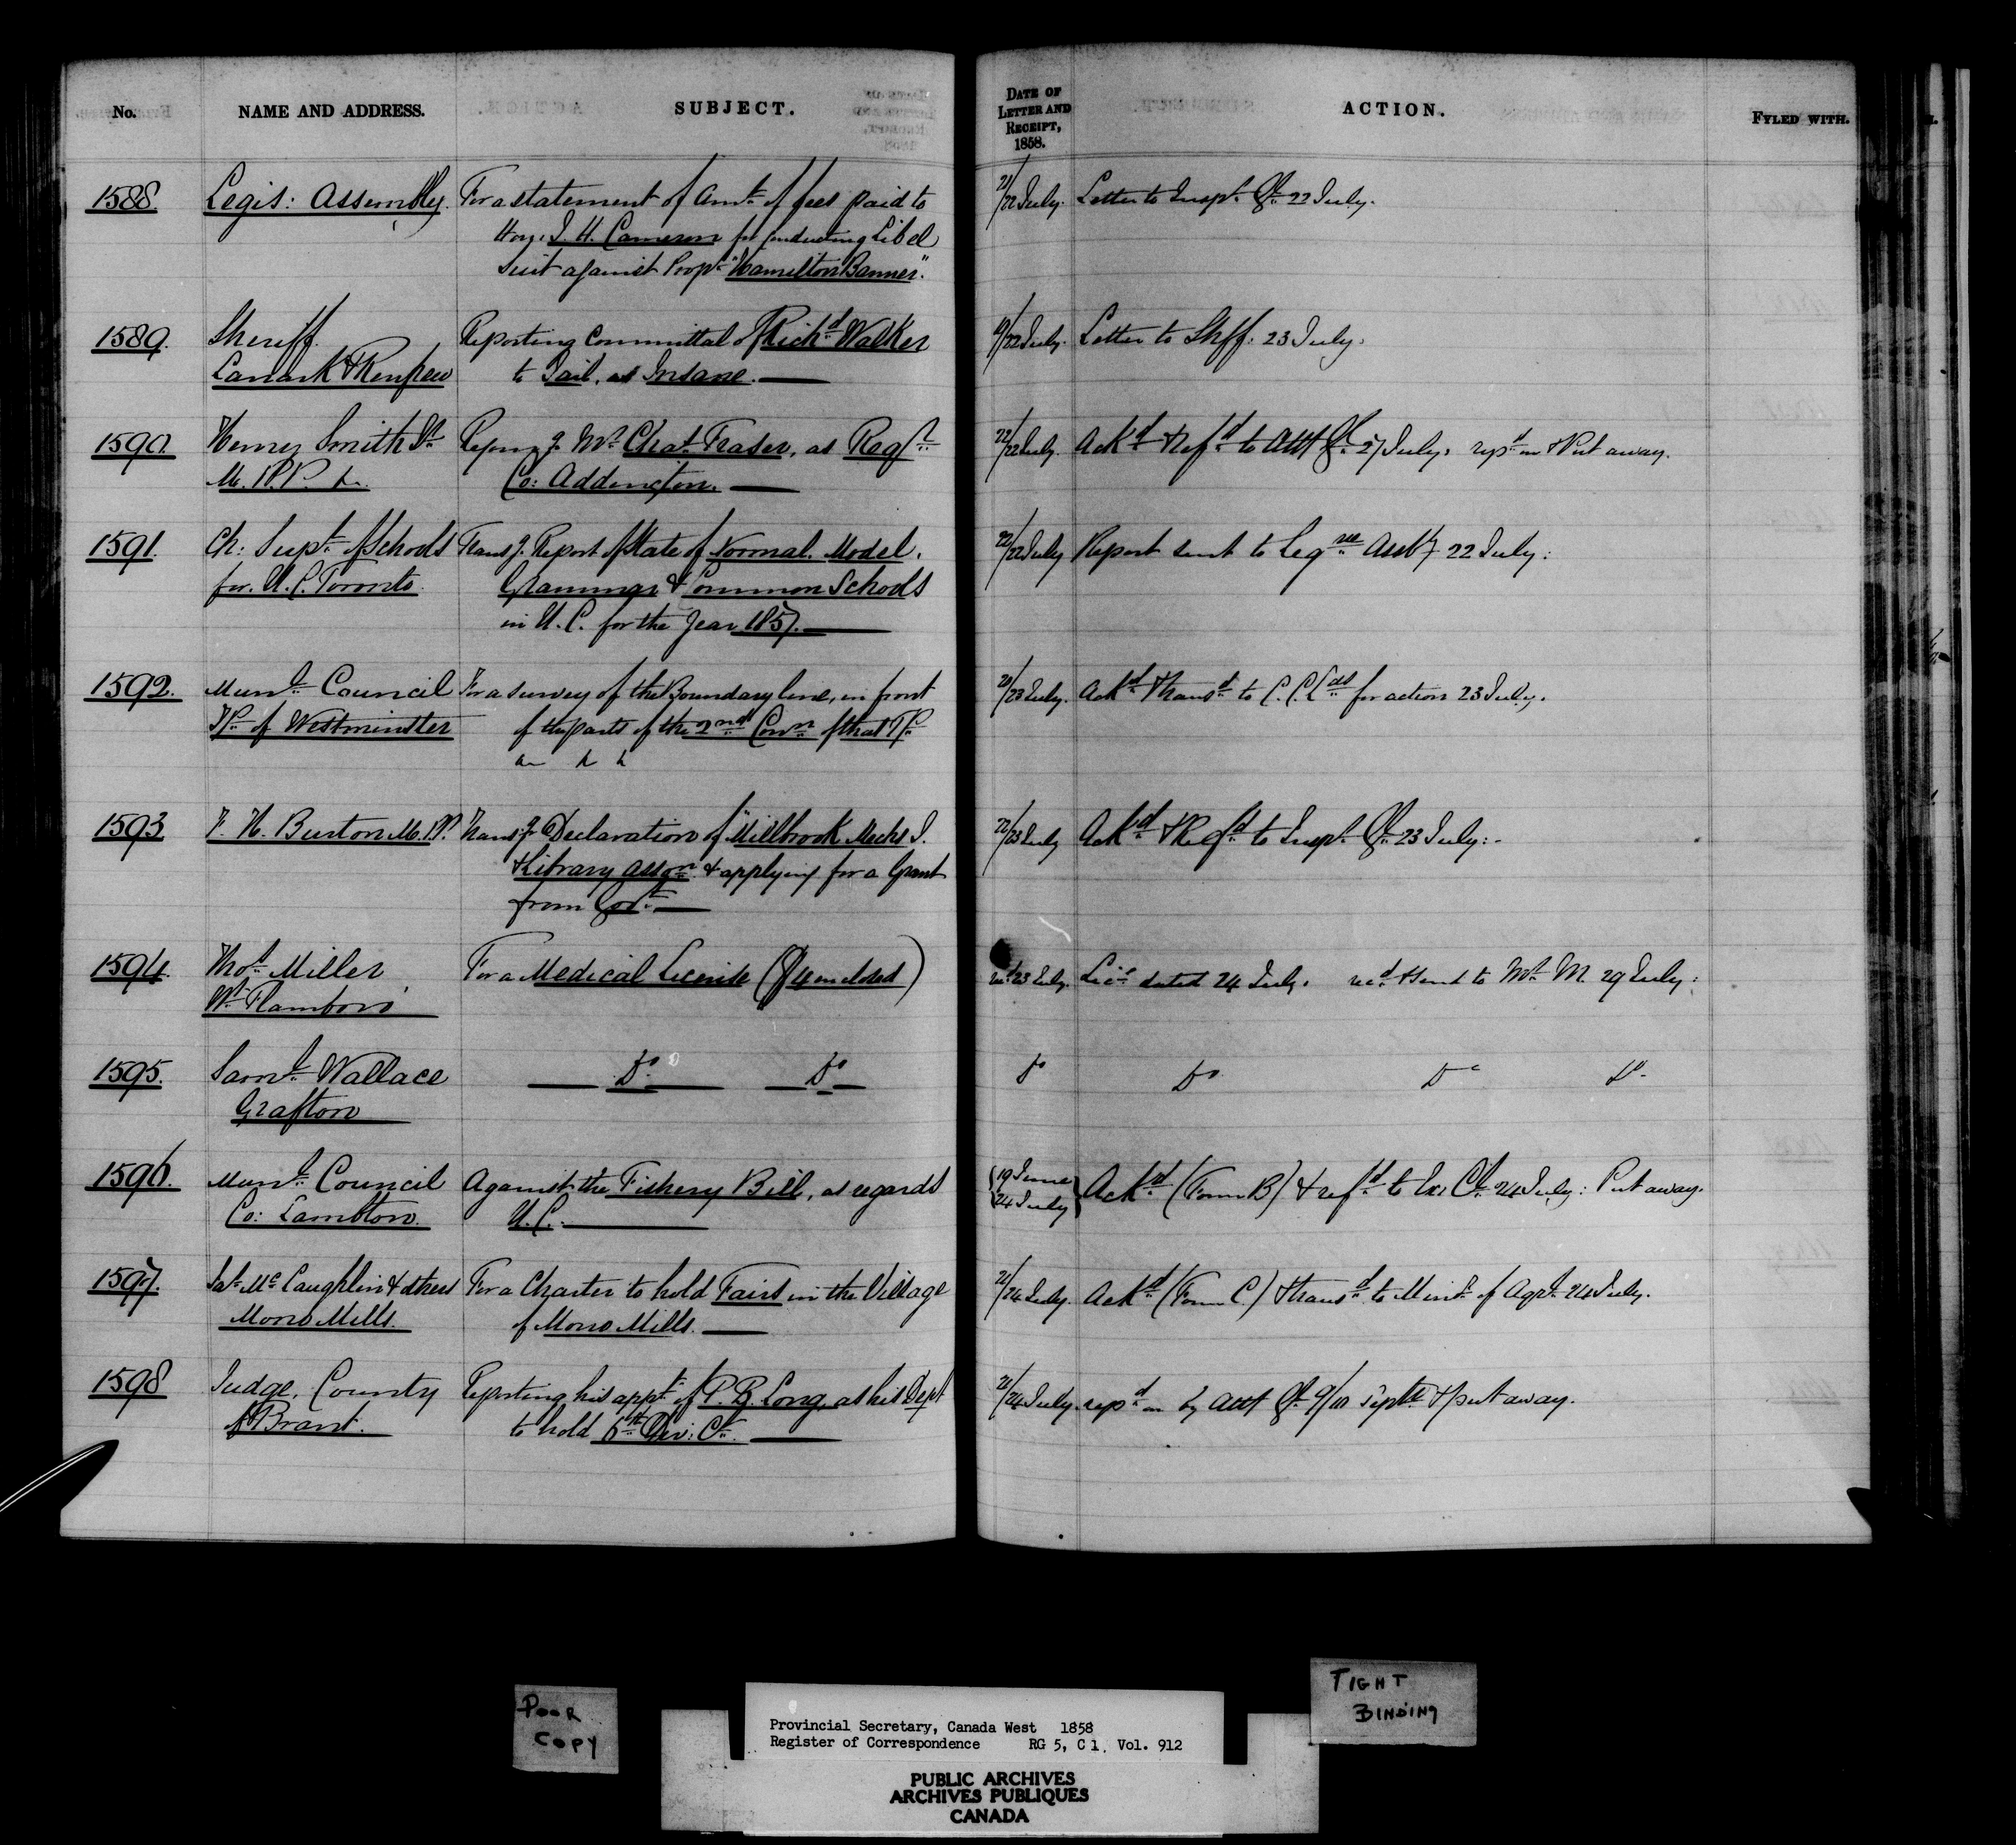 No. NAME AND ADDRESS. SUBJECT. DATE OF LETTER AND RECEIPT, 1858. ACTION. FYLED WITH.
1588. Legis: Assembly. For a statement of Amt. of fees paid to 21/22 July. Letter to Inspr. Gl. 22 July.
Hon. J. H. Cameron for conducting Libel
Suit against Propr. "Hamilton Banner".
1589. Sheriff. Reporting Committal of Richd. Walker 19/22 July. Letter to Shff. 23 July.
Lanark & Renfrew to Jail, as Insane.
1590. Henry Smith Sr. Mr. Chas. Fraser, as Regr. 22/22 July. Ackd. & refd. to Atty Gl. 27 July. repd. on & Put away.
M.P.P. Co: Addington.
1591. Ch: Supt. of Schools Transg. Report of State of Normal. Model. 22/22 July Report sent to Legve Assby 22 July:
for. U.C. Toronto. Grammar & Common Schools
in U.C. for the Year 1857.
1592. Munl. Council For a survey of the Boundary line, in front 20/23 July. Ackd. & transd. to C.C.Lds for action 23 July.
Tp. of Westminster of the parts of the 2nd Conn. of that Tp.
1593. F. H. Burton M.P.P. Transg. Declaration of "Millbrook Mechs I. 22/23 July Ackd. & Refd. to Inspr. Gl. 23 July:-
& Library Asson. & applying for a Grant
from Govt.
1594. Thos. Miller For a Medical License ($4 enclosed) recd. 23 July. Lice. dated 24 July. recd. & send to Mr. M. 29 July:
Wt. Flamboro'
1595. Saml. Wallace Do. Do. Do Do. Do Do.
Grafton
1596. Munl. Council Against the Fishery Bill, as regards 19 June Ackd. (Form B) & refd. to Ex: Cl. 24 July: Put away.
Co: Lambton. U.C. 24 July
1597. Jas. McLaughlin & others For a Charter to hold Fairs in the Village 21/24 July. Ackd. (Form C.) & transd. to Minr. of Agre. 24 July.
Mono Mills. of Mono Mills.
1598 Judge, County Reporting his appt. of P. B. Long, as his Dept 21/24 July. repd. on by Atty Gl. 9/10 Septr & put away.
of Brant. to hold 6th Div: Ct.
POOR COPY
TIGHT BINDING
Provincial Secretary, Canada West 1858
Register of Correspondence RG 5, C 1, Vol. 912
PUBLIC ARCHIVES
ARCHIVES PUBLIQUES
CANADA